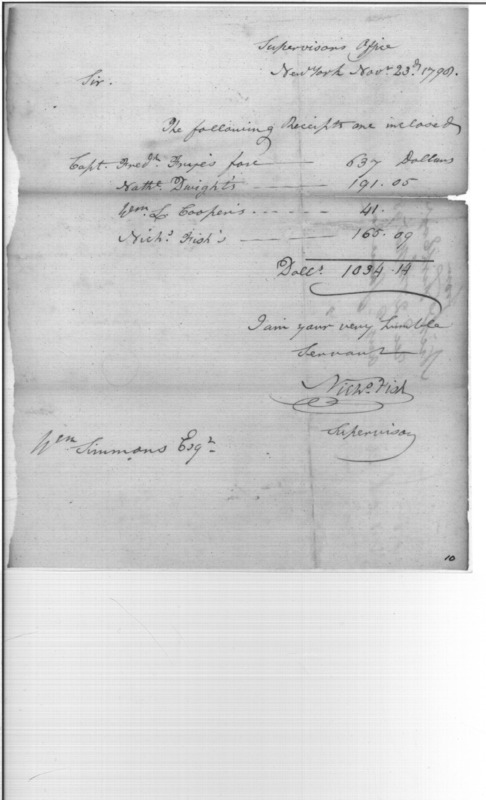 Supervisor's Office
New York Novr. 23d. 1798.
Sir.
The following Receipts are inclosed
Capt. Fredk. Frye's for — 637 Dollars
Nathl. Dwight's — 191.05
Wm. L Cooper's - - - - 41.
Nichs. Fish's — 165.09
Dolls. 1034.14
I am your very humble
Servant
Nichs. Fish
Supervisor
Wm Simmons Esqr.
10